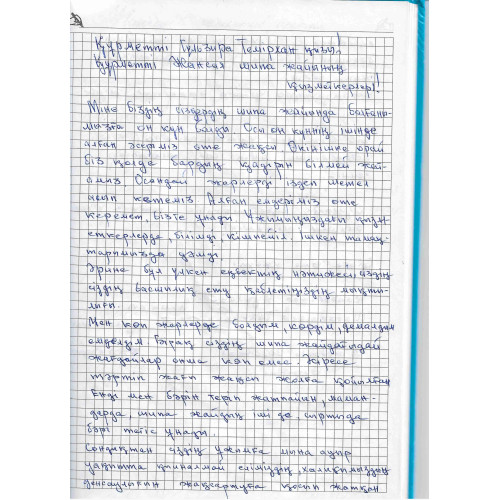 Құрметті Гүлзира Темірхан қызы!
Құрметті Жансая шипа жайының
қызметкерлері!
Міне біздің сіздердің шипа жайында батқаны-
мызға он күн болды Осы он күннің ішінде
алған әсеріміз өте жақсы Өкінішке орай
біз қолда бардың қадірін білмей жат-
амыз. Осындай жерлерді ізден шетел
асып кетеміз Алған емдеріміз өте
керемет, бізге ұнады Ұжымыңыздағы қызм
еткерлерде білімді кішпейіл. Ішкен тамақ
тарымызда үзмді
Әрине бұл үлкен еңбектің нәтижесі, сіздің
сіздің басшылық ету қабілетіңіздің мықты-
лығы.
Мен көп жерлерде болдым, көрдім, демалдым
емделдім Бірақ сіздің шипа жайдағыдай
жағдайлар онша көп емес. Әсіресе
тәртіп жағы жақсы жолға қойылған
Енді мен бәрін теріп жатпайын, маман-
дарда, шипа жайдың іші де, сыртыда
бәрі тегіс ұнады.
Сондықтан сіздің ұжымға мына ауыр
уақытта қиналмай еліміздің, халқымыздың
денсаулығын жақсартуға қосып жатқан